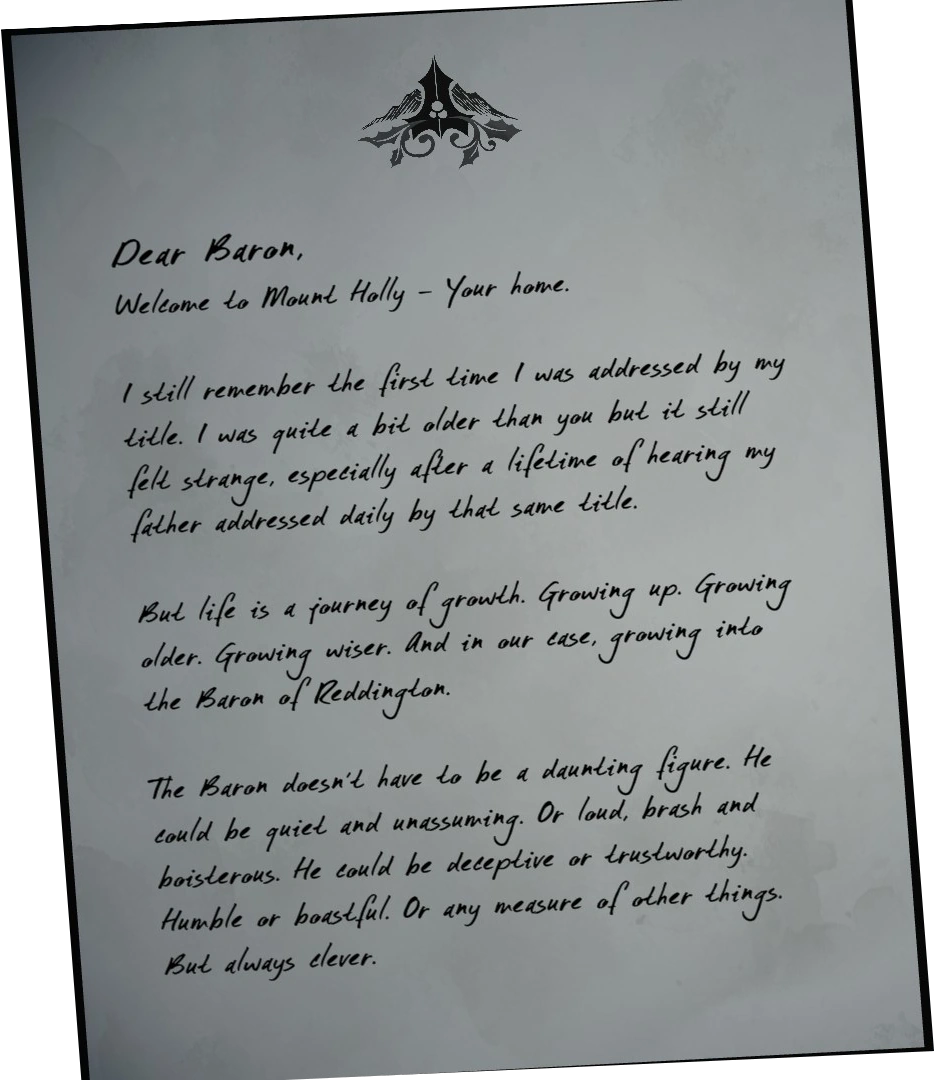 Dear Baron,
Welcome to Mount Holly – Your home.
I still remember the first time I was addressed by my
title. I was quite a bit older than you but it still
felt strange, especially after a lifetime of hearing my
father addressed daily by that same title.
But life is a journey of growth. Growing up. Growing
older. Growing wiser. And in our case, growing into
the Baron of Reddington.
The Baron doesn't have to be a daunting figure. He
could be quiet and unassuming. Or loud, brash and
boisterous. He could be deceptive or trustworthy.
Humble or boastful. Or any measure of other things.
But always clever.